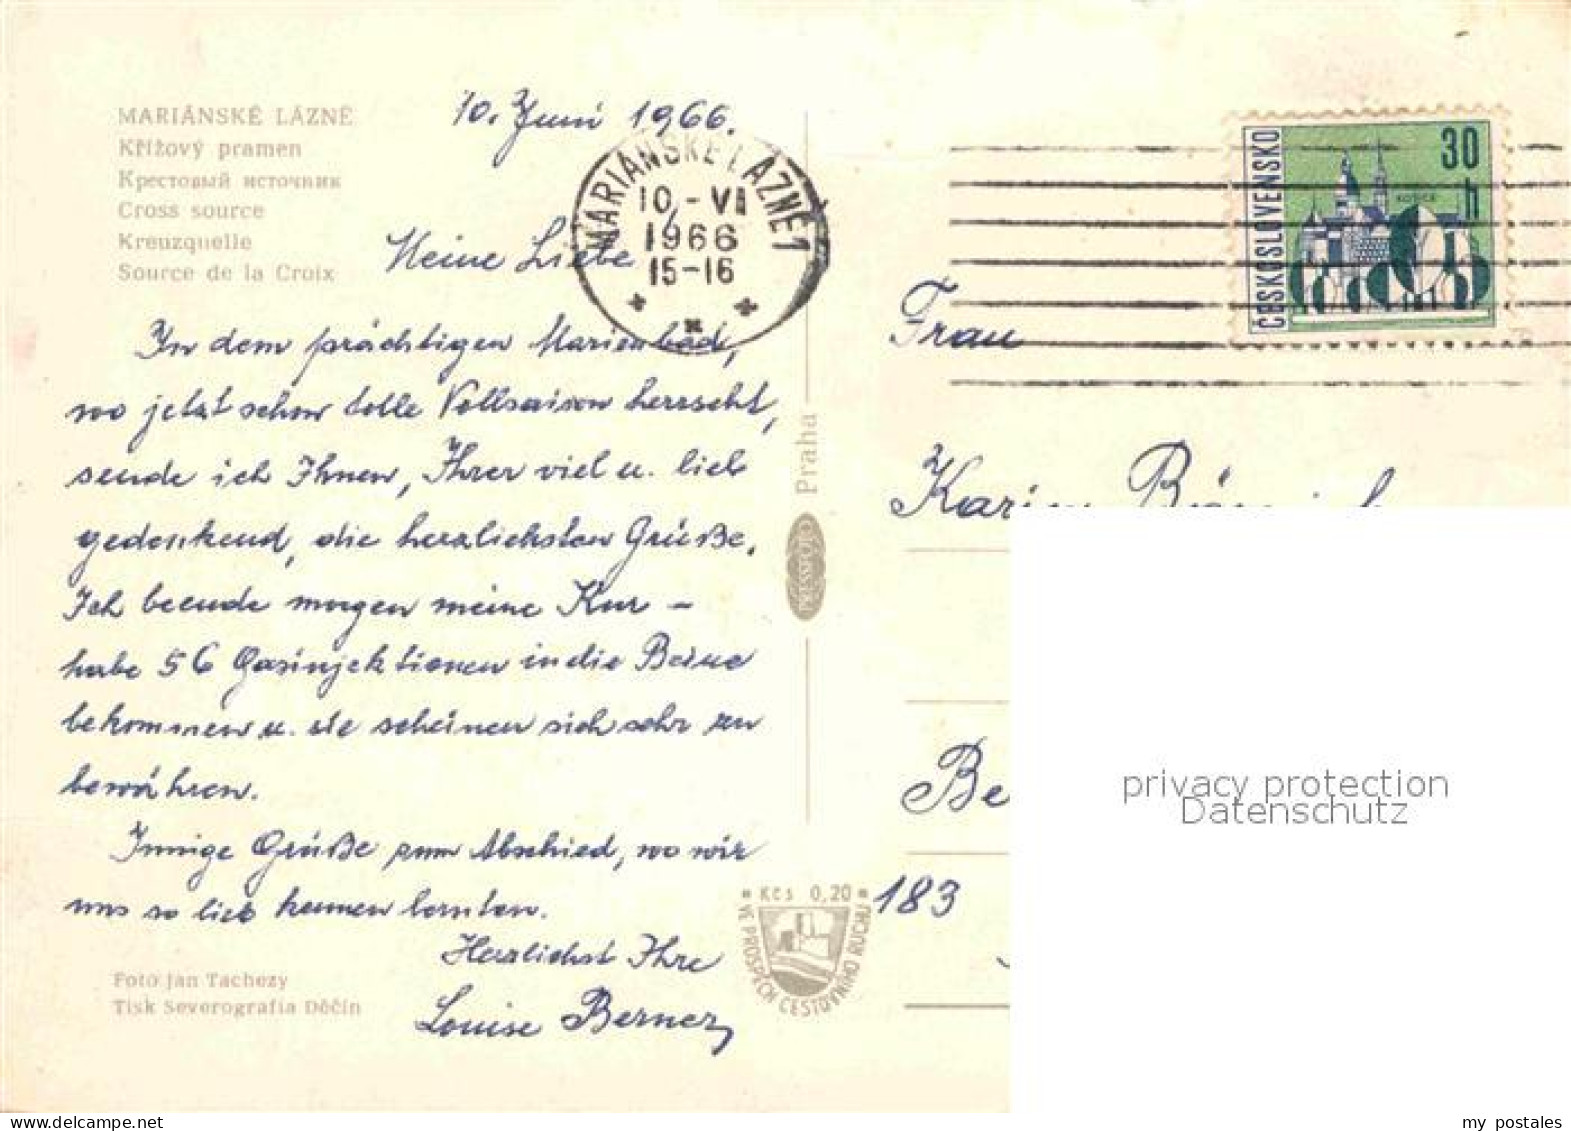 MARIÁNSKÉ LÁZNĚ
Křížový pramen
Крестовый источник
Cross source
Kreuzquelle
Source de la Croix
10. Juni 1966.
MARIÁNSKÉ LÁZNĚ 1
10.-VI
1966
15-16
Meine Liebe
In dem prächtigen Marienbad,
wo jetzt schon tolle Vollsaison herrscht,
sende ich Ihnen, Ihrer viel u. lieb
gedenkend, die herzlichsten Grüße.
Ich beende morgen meine Kur –
habe 56 Gasinjektionen in die Beine
bekommen u. sie scheinen sich sehr zu
bewähren.
Innige Grüße zum Abschied, wo wir
uns so lieb kennen lernten.
Herzlichst Ihre
Louise Berner
Foto Jan Tachezy
Tisk Severografia Děčín
Praha
PRESSFOTO
Kčs 0,20
VE PROSPĚCH CESTOVNÍHO RUCHU
ČESKOSLOVENSKO
30
h
KOŠICE
Frau
Karin
Be
183
privacy protection
Datenschutz
www.delcampe.net
my_postales